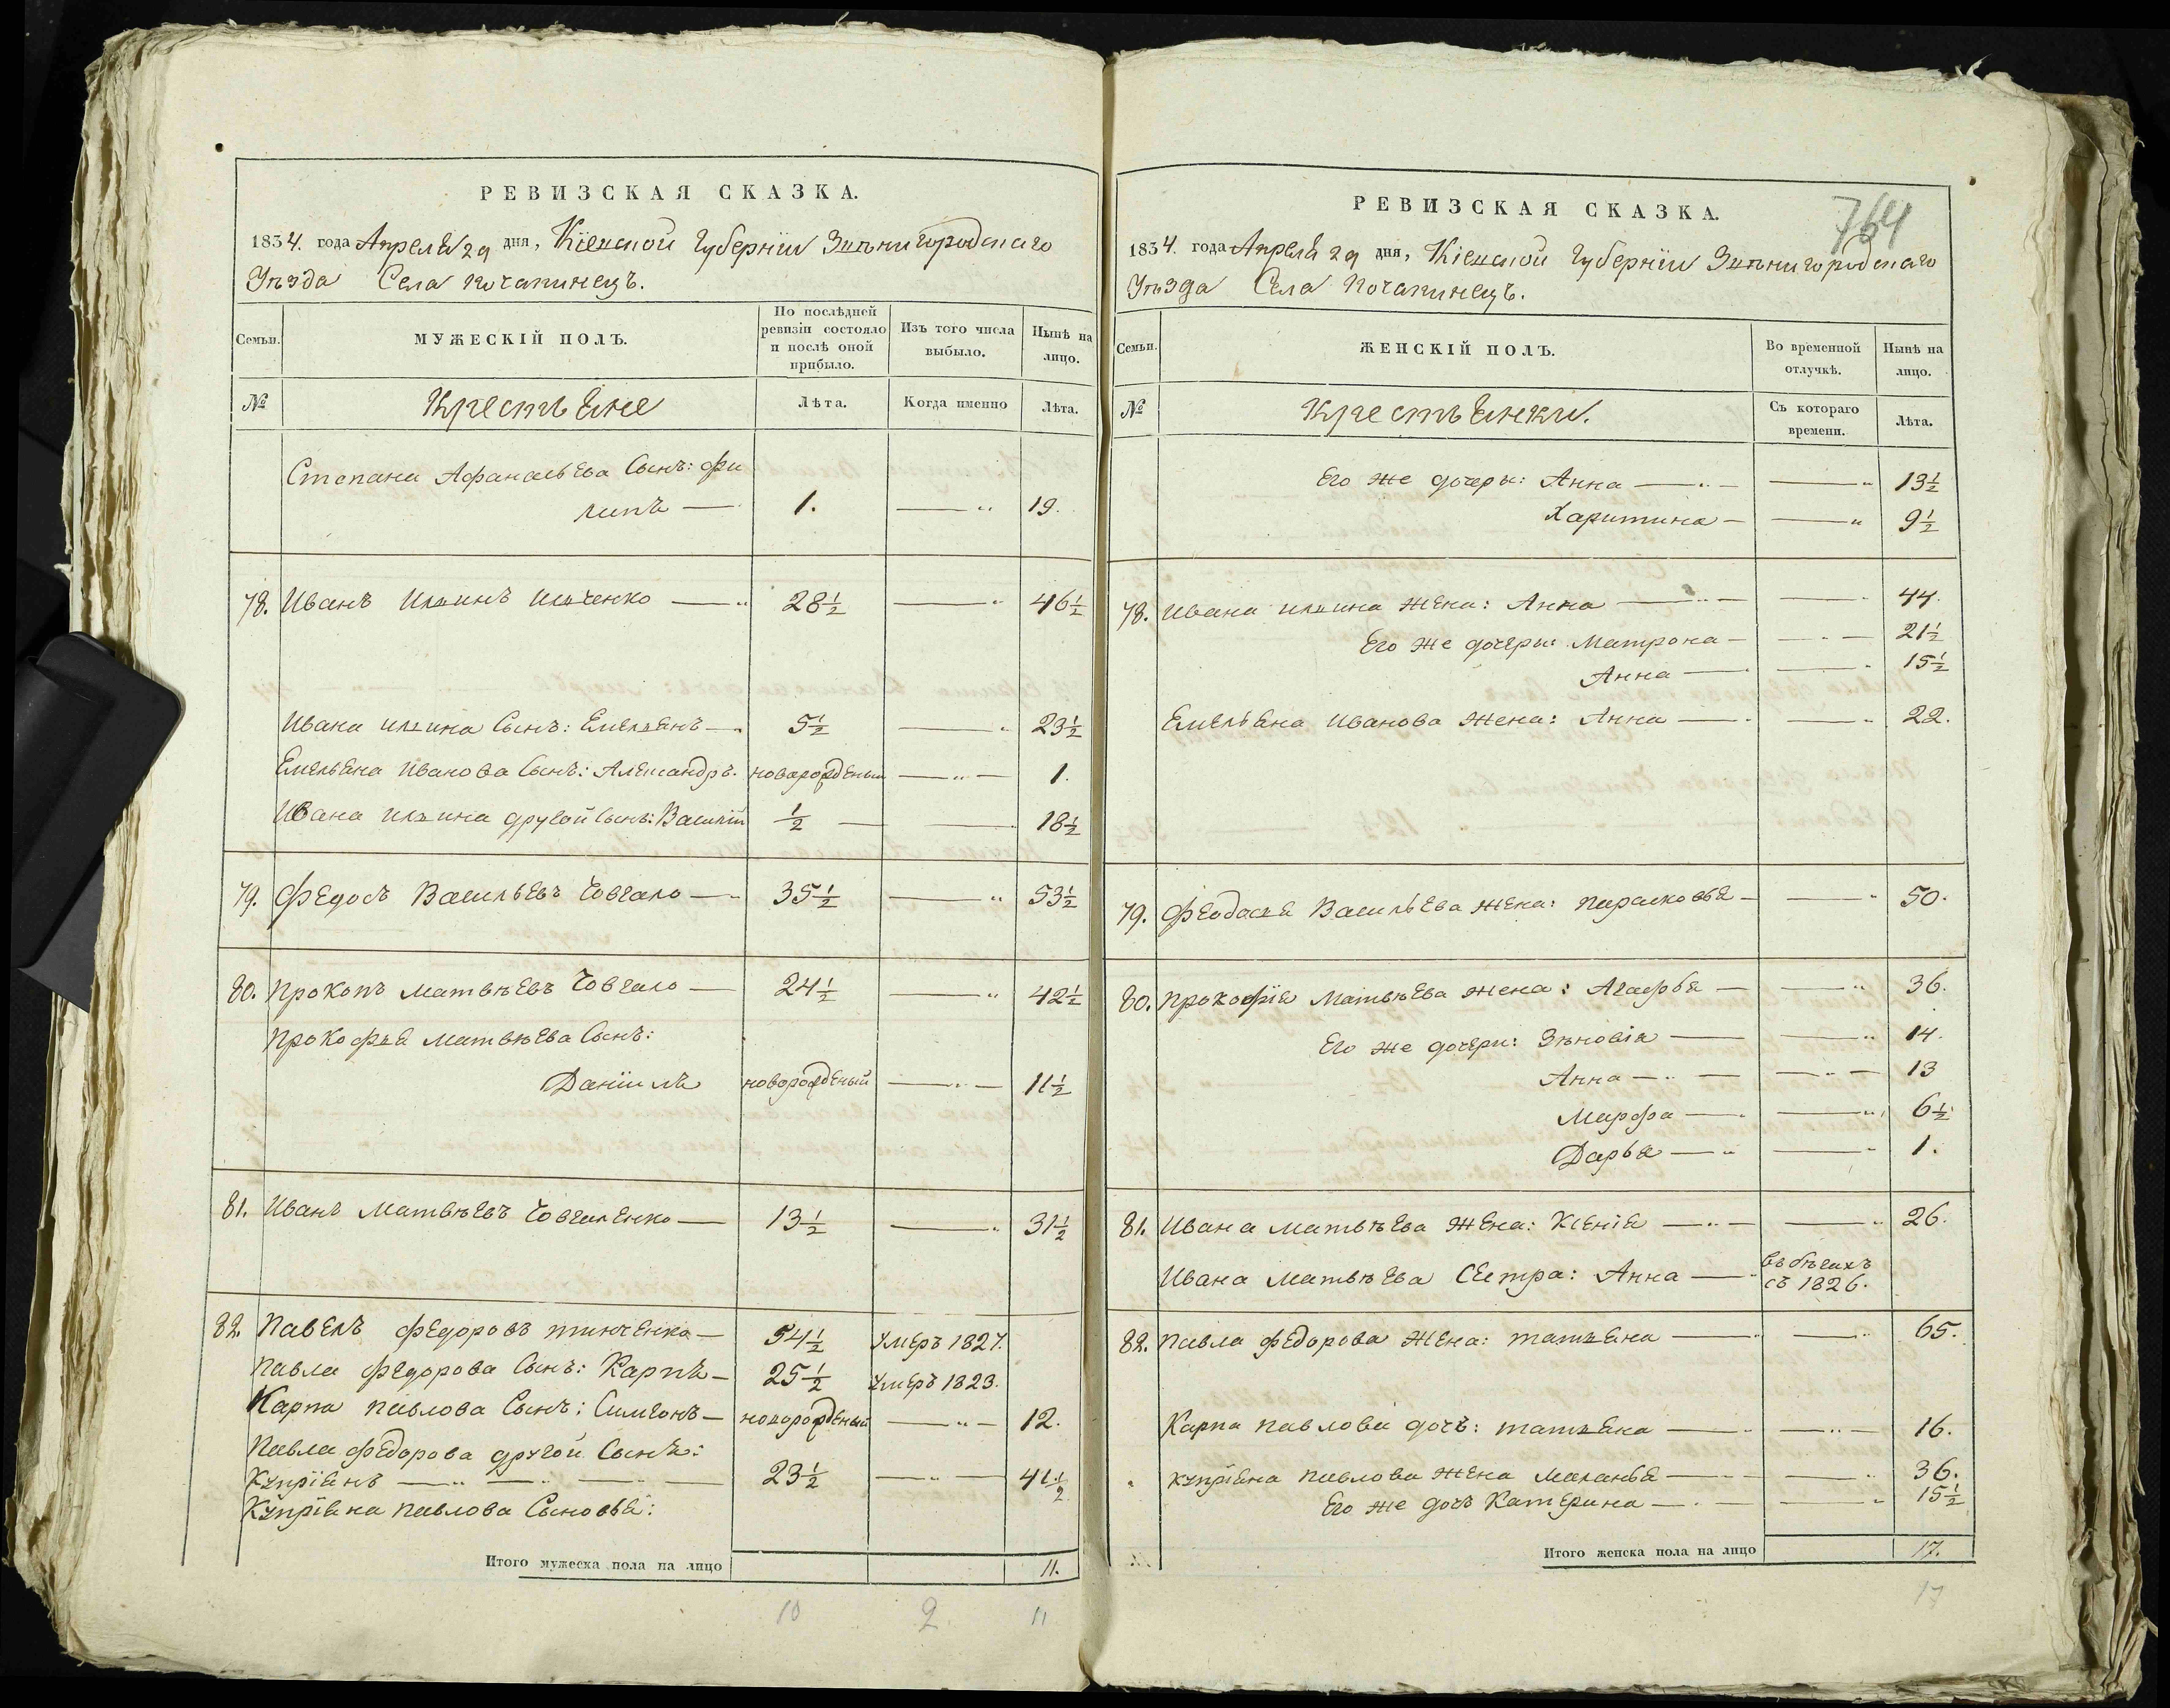 РЕВИЗСКАЯ СКАЗКА.
1834. года Апреля 29 дня, Кіевской Губерніи Звѣнигородскаго
Уѣзда Села Почапинецъ.
Семьи.
МУЖЕСКІЙ ПОЛЪ.
По послѣдней ревизіи состояло и послѣ оной прибыло.
Изъ того числа выбыло.
Нынѣ на лицо.
№
Крестьяне
Лѣта.
Когда именно
Лѣта.
Степана Афанасьева Сынъ: Фи
липъ — 1. — 19.
78. Иванъ Ильинъ Ильченко — 28½ — 46½
Ивана Ильина Сынъ: Емельянъ — 5½ — 23½
Емельяна Иванова Сынъ: Александръ. новорожденый — 1.
Ивана Ильина другой Сынъ: Василій ½ — 18½
79. Федосъ Васильевъ Човгало — 35½ — 53½
80. Прокопъ Матвѣевъ Човгало — 24½ — 42½
Прокофья Матвѣева Сынъ:
Даніилъ новорожденый — 11½
81. Иванъ Матвѣевъ Човгаленко — 13½ — 31½
82. Павелъ Федоровъ Тинченко — 54½ умеръ 1827.
Павла Федорова Сынъ: Карпъ — 25½ умеръ 1823.
Карпа Павлова Сынъ: Симеонъ — новорожденый — 12.
Павла Федорова другой Сынъ:
Купріянъ — 23½ — 41½
Купріяна Павлова Сыновья:
Итого мужеска пола на лицо 11.
10 2 11
РЕВИЗСКАЯ СКАЗКА.
764
1834. года Апреля 29 дня, Кіевской Губерніи Звѣнигородскаго
Уѣзда Села Почапинецъ.
Семьи.
ЖЕНСКІЙ ПОЛЪ.
Во временной отлучкѣ.
Нынѣ на лицо.
№
Крестьянки.
Съ котораго времени.
Лѣта.
Его же дочери: Анна — 13½
Харитина — 9½
78. Ивана Ильина жена: Анна — 44.
Его же дочери: Матрона — 21½
Анна — 15½
Емельяна Иванова жена: Анна — 22.
79. Феодосья Васильева жена: Парасковья — 50.
80. Прокофія Матвѣева жена: Агафья — 36.
Его же дочери: Зѣновія — 14.
Анна — 13
Марфа — 6½
Дарья — 1.
81. Ивана Матвѣева жена: Ксенія — 26.
Ивана Матвѣева Сестра: Анна — въ бѣгахъ
съ 1826.
82. Павла Федорова жена: Татьяна — 65.
Карпа Павлова дочь: Татьяна — 16.
Купріяна Павлова жена Маланья — 36.
Его же дочь Катерина — 15½
Итого женска пола на лицо 17.
17